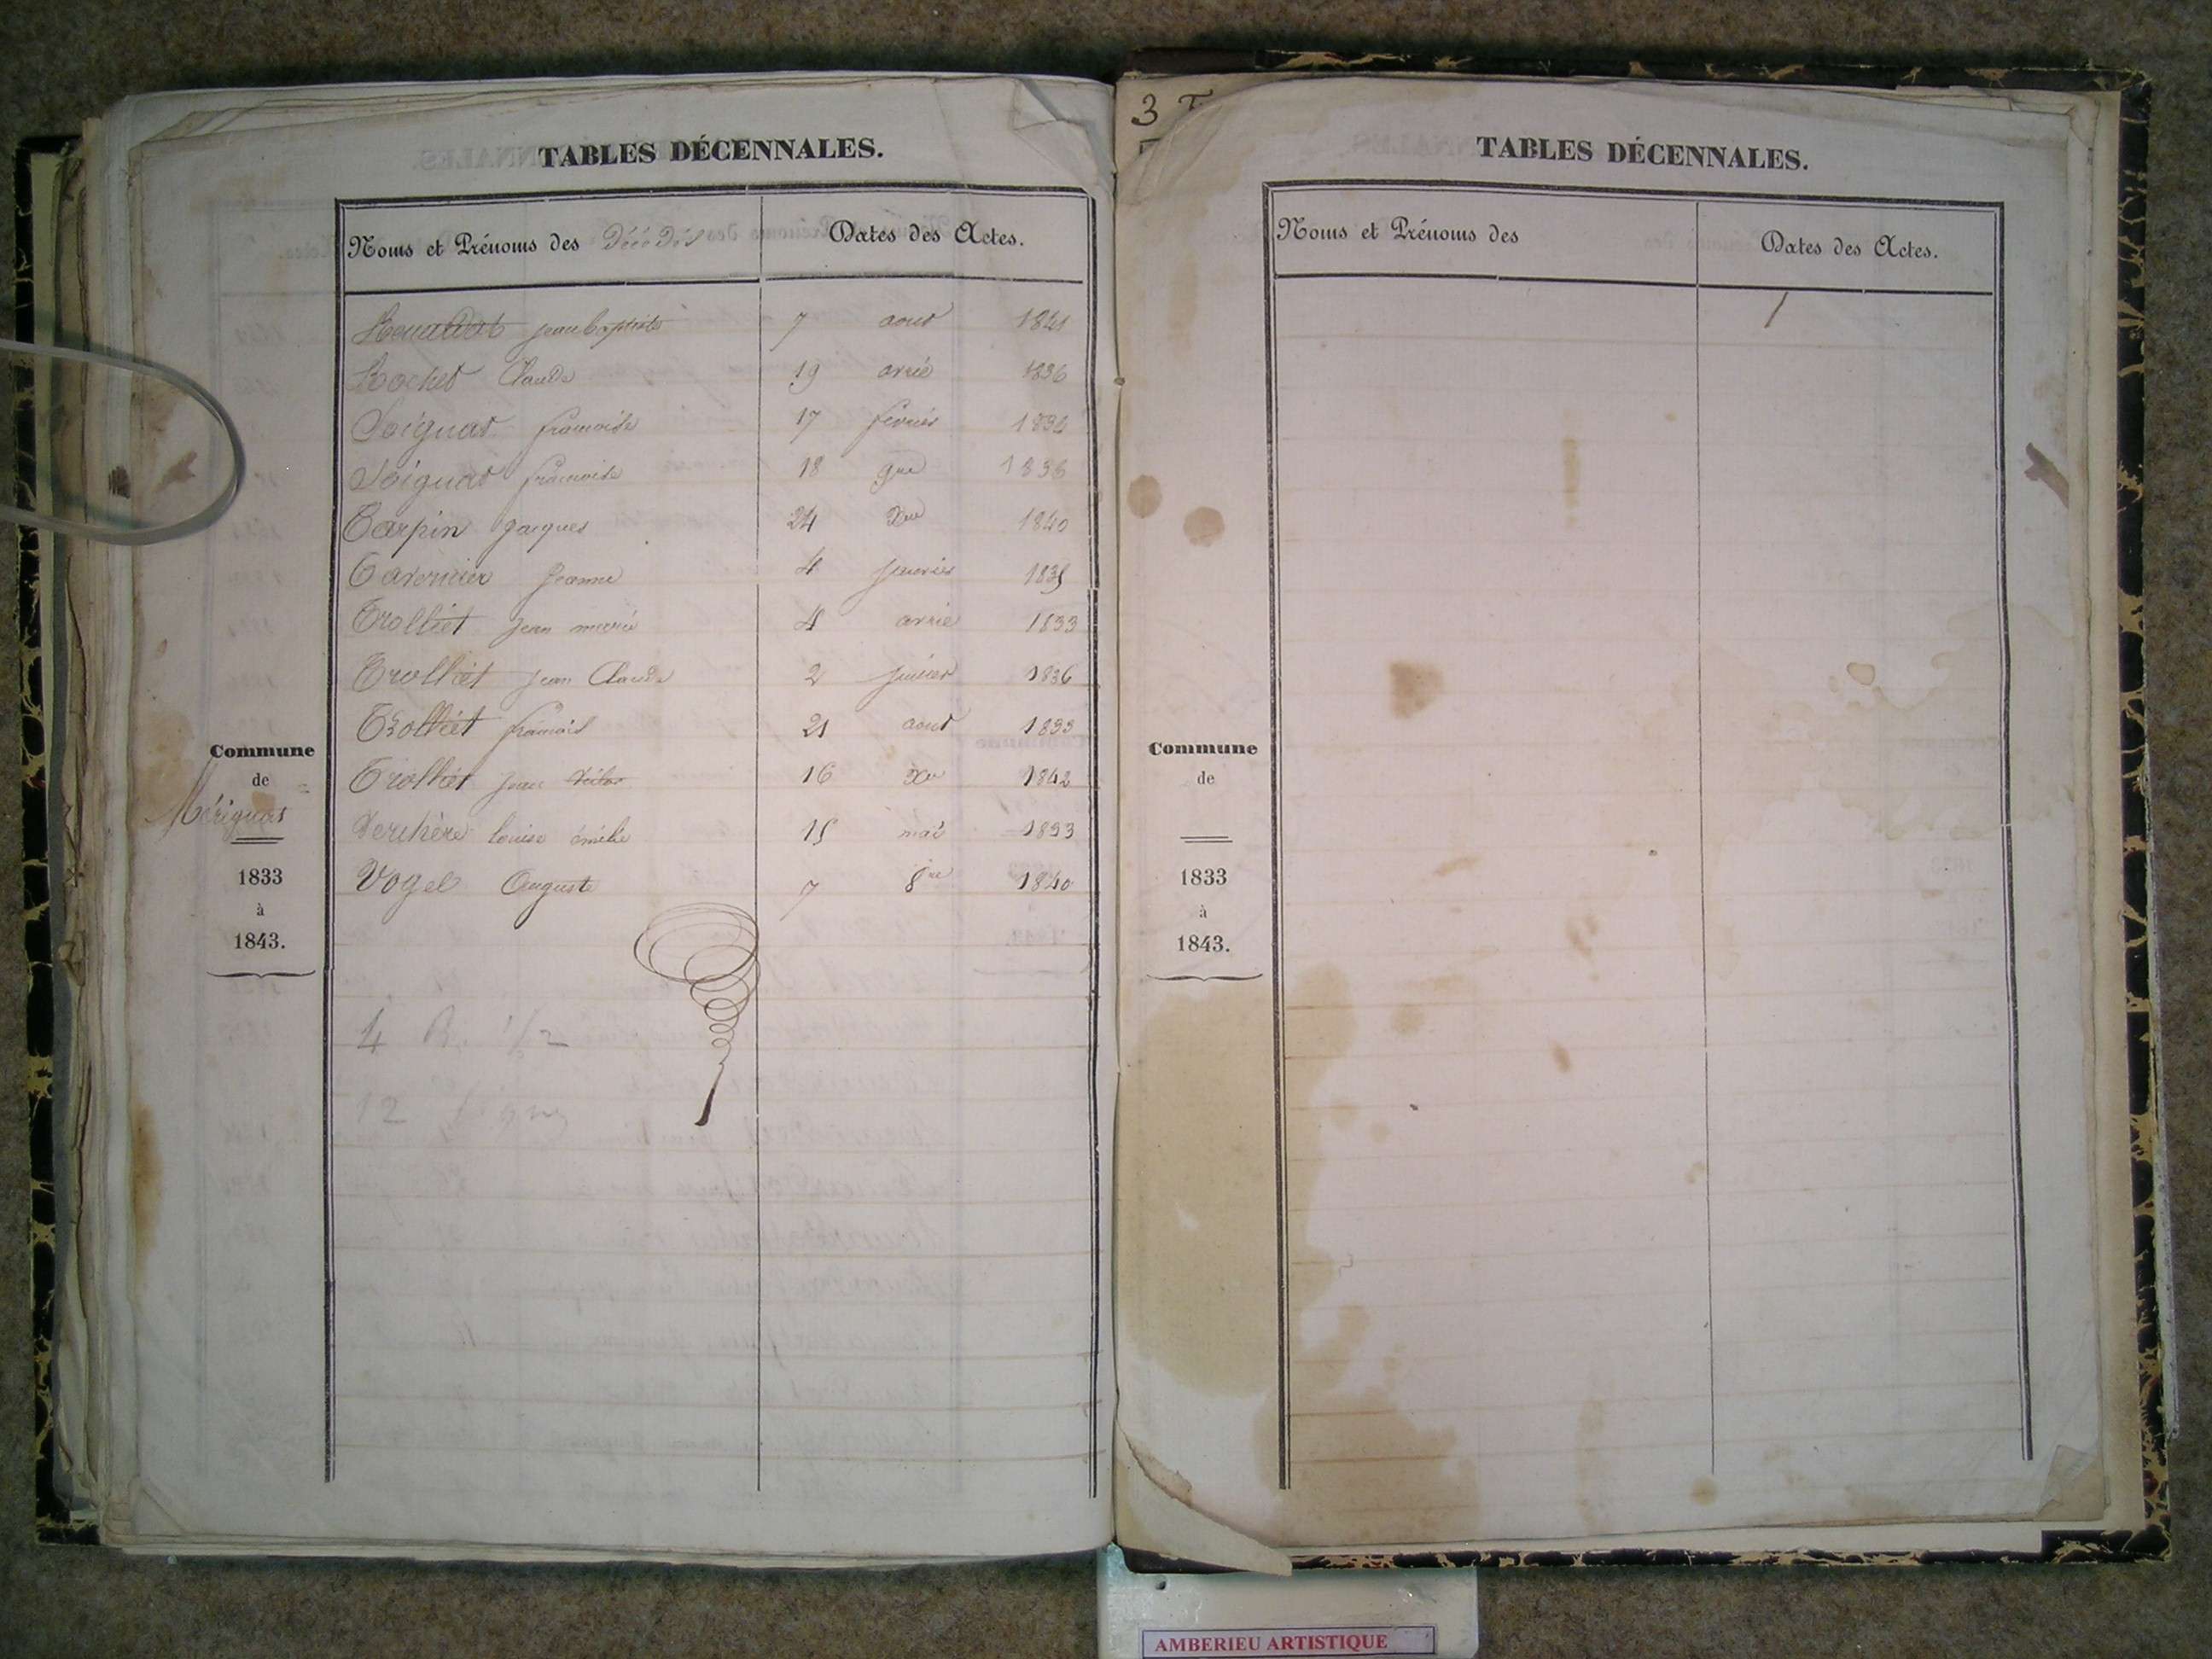 TABLES DÉCENNALES.
Noms et Prénoms des Décédés Dates des Actes.
jean baptiste 7 aout 1841
Rochet Claude 19 avril 1836
Soignat francoise 17 fevrier 1834
Soignat francoise 18 9bre 1836
Tarpin Jacques 24 Xbre 1840
Tavernier Jeanne 4 janvier 1835
Trolliet jean marie 4 avril 1833
Trolliet jean Claude 2 1836
Trolliet francois 21 aout 1833
Trolliet jean 16 Xbre 1842
Verchère louise émélie 15 mai 1833
Vogel Auguste 7 8bre 1840
Commune
de
Mérignat
1833
à
1843.
4 R. 1/2
12
3
TABLES DÉCENNALES.
Noms et Prénoms des Dates des Actes.
Commune
de
1833
à
1843.
AMBERIEU ARTISTIQUE